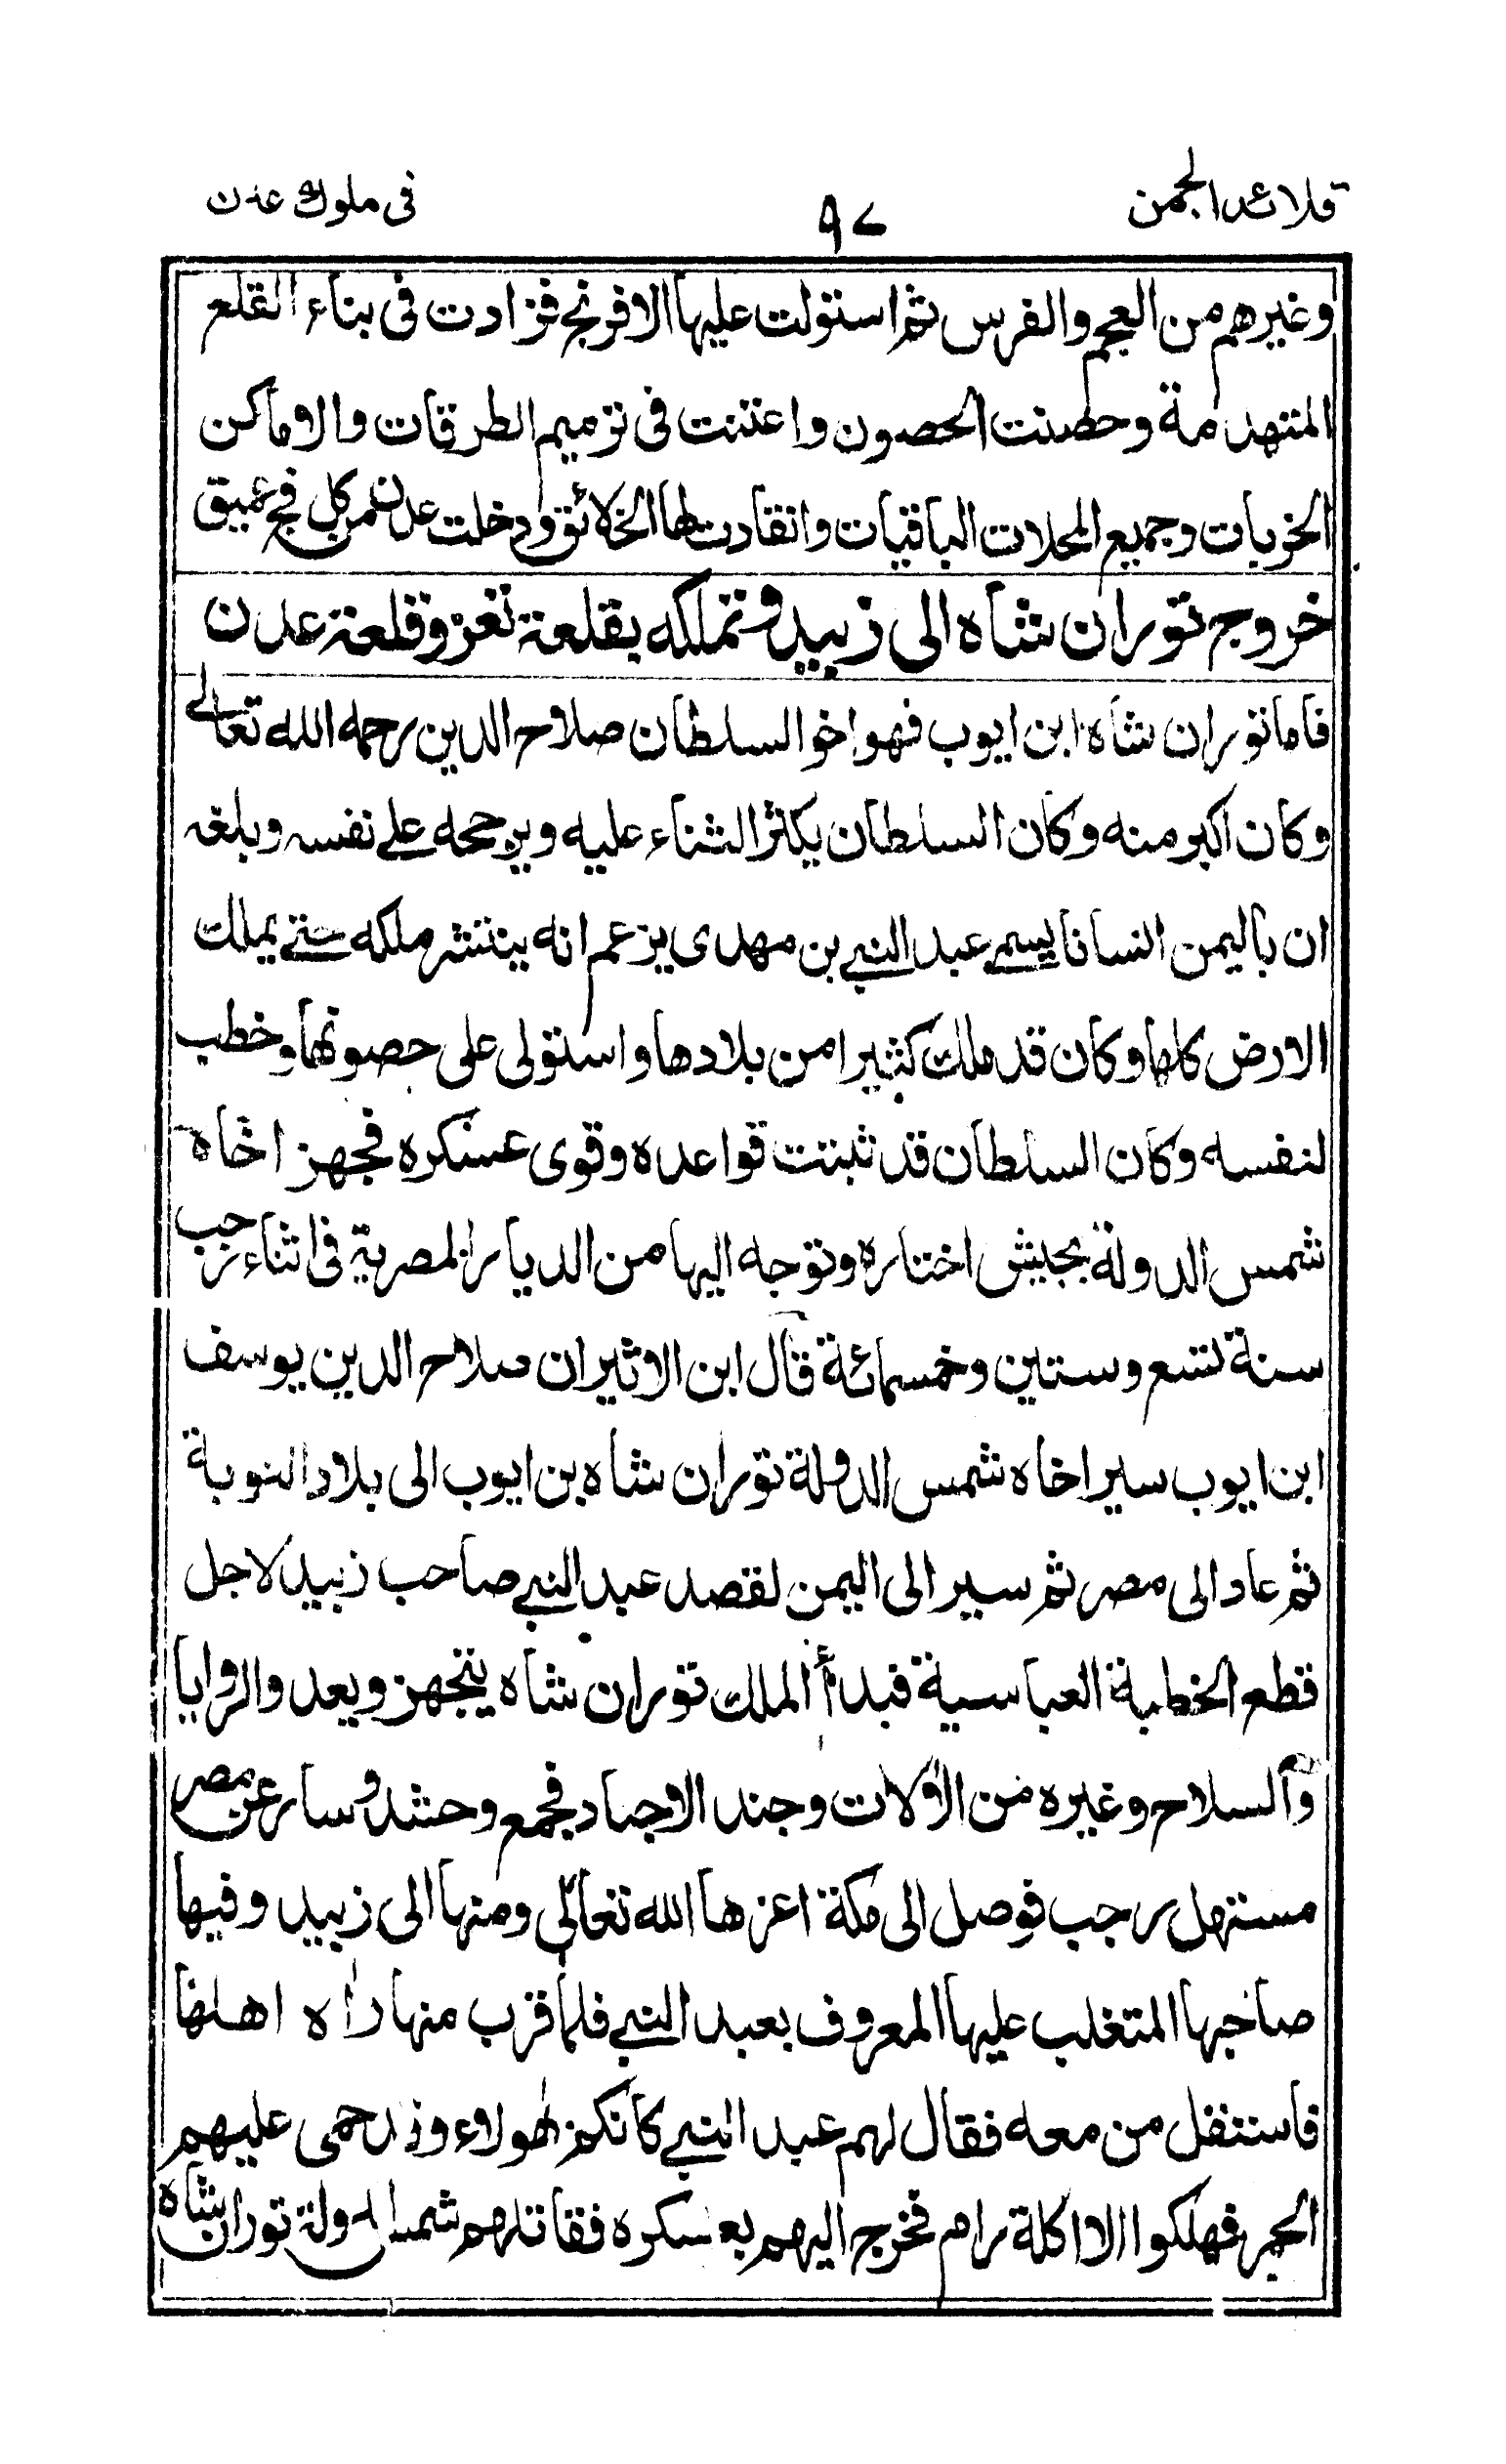 قلائد الجمن ٩٧ فى ملوك عدن
وغيرهم من العجم والفرس ثم استولت عليها الافرنج فزادت فى بناء القلع
المتهدمة وحصنت الحصون واعتنت فى ترميم الطرقات والاماكن
الخربات وجميع المحلات الباقيات وانقادت لها الخلائق ودخلت عدن من كل فج عميق
خروج توران شاه الى زبيد وتملكه بقلعة تعز وقلعة عدن
فاما توران شاه ابن ايوب فهو اخو السلطان صلاح الدين رحمه الله تعالے
وكان اكبر منه وكان السلطان يكثر الثناء عليه ويرجحه علے نفسه وبلغه
ان باليمن انسانا يسمے عبد النبے بن مهدى يزعم انه ينتشر ملكه حتے يملك
الارض كلها وكان قد ملك كثيرا من بلادها واستولى على حصونها وخطب
لنفسه وكان السلطان قد ثبتت قواعده وقوى عسكره فجهز اخاه
شمس الدولة بجيش اختاره وتوجه اليها من الديار المصرية فى اثناء رجب
سنة تسع وستين وخمسمائة قال ابن الاثير ان صلاح الدين يوسف
ابن ايوب سير اخاه شمس الدولة توران شاه بن ايوب الى بلاد النوبة
ثم عاد الى مصر ثم سير الى اليمن لقصد عبد النبے صاحب زبيد لاجل
قطع الخطبة العباسية فبدأ الملك توران شاه يتجهز ويعد والروايا
والسلاح وغيره من الآلات وجند الاجناد فجمع وحشد وسار عن مصر
مستهل رجب فوصل الى مكة اعزها الله تعالى ومنها الى زبيد وفيها
صاحبها المتغلب عليها المعروف بعبد النبے فلما قرب منها راٰه اهلها
فاستقل من معه فقال لهم عبد النبے كانكم بهولاء وقد حمى عليهم
الحر فهلكوا الا اكلة رام فخرج اليهم بعسكره فقاتلهم شمس الدولة توران شاه